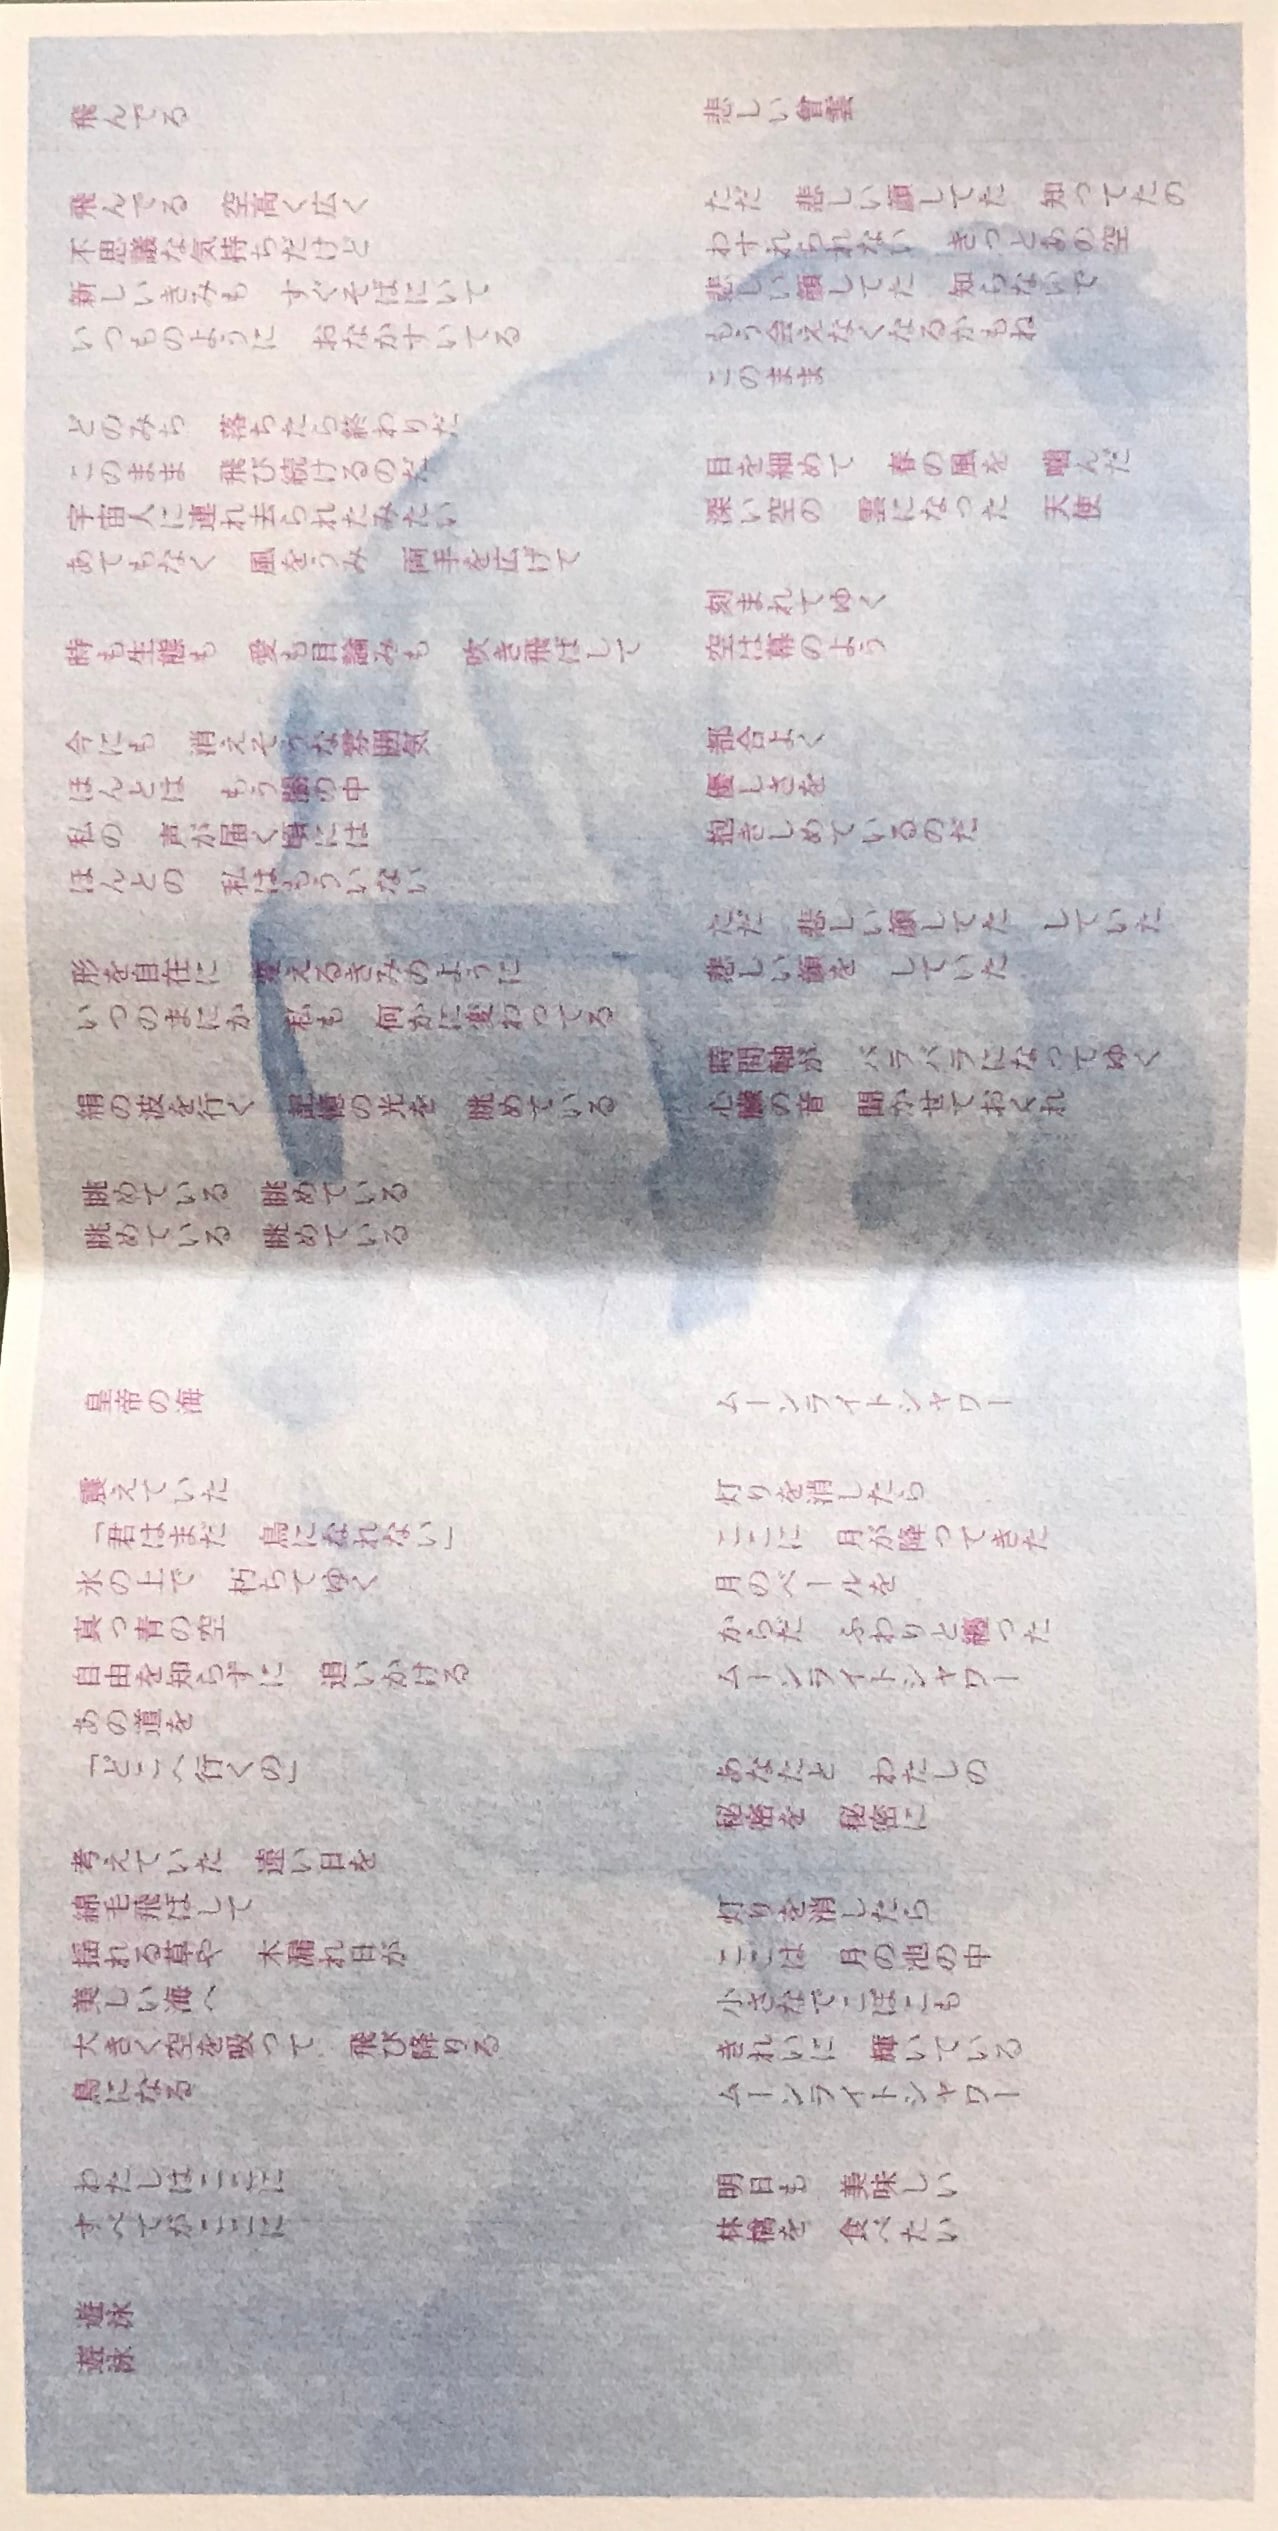 飛んでる
飛んでる　空高く広く
不思議な気持ちだけど
新しいきみも　すぐそばにいて
いつものように　おなかすいてる
どのみち　落ちたら終わりだ
このまま　飛び続けるのだ
宇宙人に連れ去られたみたい
あてもなく　風をうみ　両手を広げて
時も生態も　愛も目論みも　吹き飛ばして
今にも　消えそうな雰囲気
ほんとは　もう闇の中
私の　声が届く頃には
ほんとの　私はもういない
形を自在に　変えるきみのように
いつのまにか　私も　何かに変わってる
絹の波を行く　記憶の光を　眺めている
眺めている　眺めている
眺めている　眺めている
悲しい曾雲
ただ　悲しい顔してた　知ってたの
わすれられない　きっとあの空
悲しい顔してた　知らないで
もう会えなくなるかもね
このまま
目を細めて　春の風を　噛んだ
深い空の　雲になった　天使
刻まれてゆく
空は幕のよう
都合よく
優しさを
抱きしめているのだ
ただ　悲しい顔してた　していた
悲しい顔を　していた
時間軸が　バラバラになってゆく
心臓の音　聞かせておくれ
皇帝の海
震えていた
「君はまだ　鳥になれない」
氷の上で　朽ちてゆく
真っ青の空
自由を知らずに　追いかける
あの道を
「どこへ行くの」
考えていた　遠い日を
綿毛飛ばして
揺れる草や　木漏れ日が
美しい海へ
大きく空を吸って　飛び降りる
鳥になる
わたしはここに
すべてがここに
遊泳
遊泳
ムーンライトシャワー
灯りを消したら
ここに　月が降ってきた
月のベールを
からだ　ふわりと纏った
ムーンライトシャワー
あなたと　わたしの
秘密を　秘密に
灯りを消したら
ここは　月の池の中
小さなでこぼこも
きれいに　輝いている
ムーンライトシャワー
明日も　美味しい
林檎を　食べたい